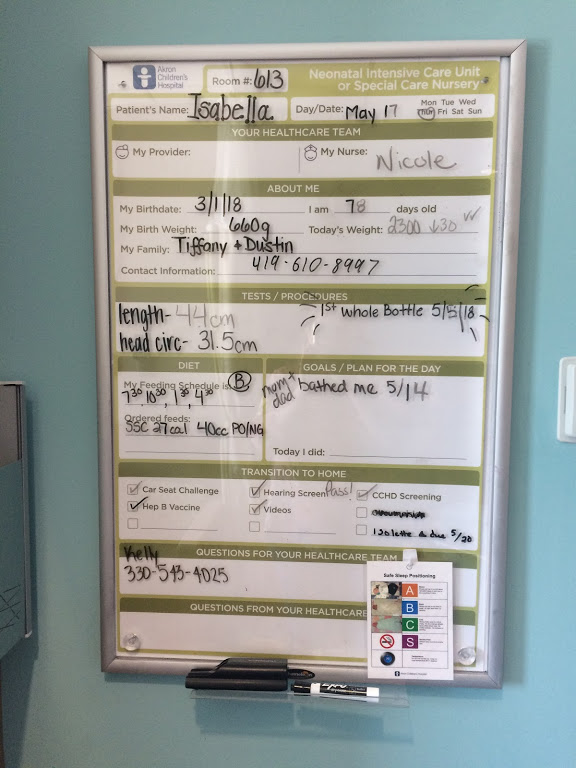 Akron
Children's
Hospital
Room #: 613
Neonatal Intensive Care Unit
or Special Care Nursery
Patient's Name: Isabella
Day/Date: May 17
Mon Tue Wed
Thur Fri Sat Sun
YOUR HEALTHCARE TEAM
My Provider:
My Nurse: Nicole
ABOUT ME
My Birthdate: 3/1/18
I am 78 days old
My Birth Weight: 660g
Today's Weight: 2300 ↓30 ✓✓
My Family: Tiffany + Dustin
Contact Information: 419-610-8997
TESTS / PROCEDURES
length- 44cm
1st whole Bottle 5/5/18
head circ- 31.5cm
DIET
My Feeding Schedule is: B
7³⁰, 10³⁰, 1³⁰, 4³⁰
Ordered feeds:
SSC 27cal 40cc PO/NG
GOALS / PLAN FOR THE DAY
mom + dad bathed me 5/14
Today I did:
TRANSITION TO HOME
Car Seat Challenge
Hearing Screen Pass!
CCHD Screening
Hep B Vaccine
Videos
Isolette due 5/20
QUESTIONS FOR YOUR HEALTHCARE TEAM
Kelly
330-543-4025
QUESTIONS FROM YOUR HEALTHCARE
Safe Sleep Positioning
A
B
C
S
Akron Children's Hospital
EXPO